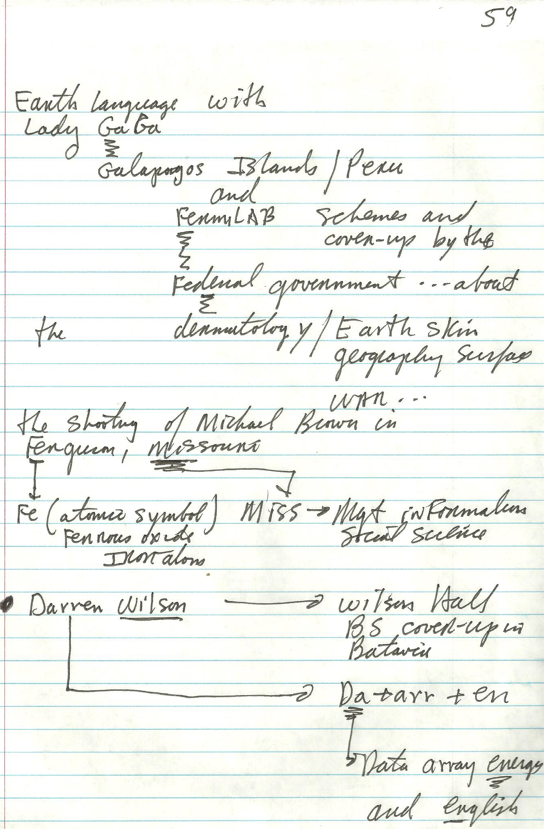 59
Earth language with
Lady GaGa
Galapagos Islands / Peru
and
FermiLAB schemes and
cover-up by the
Federal government ... about
the dermatology / Earth skin
geography surface
WAR ...
the shooting of Michael Brown in
Ferguson, Missouri
Fe (atomic symbol) MISS → Mgt information
Ferrous oxide Social Science
Iron atoms
• Darren Wilson → Wilson Hall
BS cover-up in
Batavia
Da + arr + en
Data array energy
and english